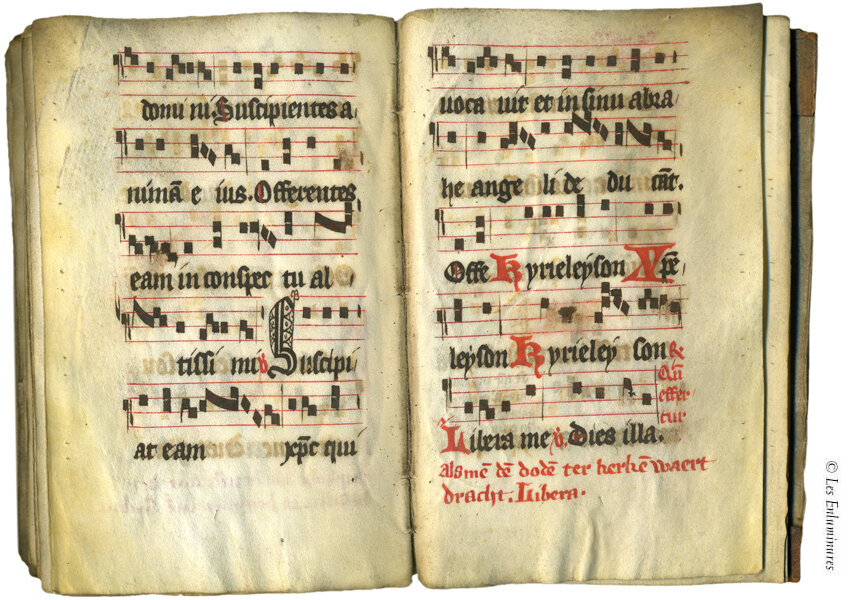 domi ni Suscipientes a
nimã e ius. Offerentes
eam in conspec tu al
tissi mi ℣ Suscipi
at eam xp̃c qui
uoca uit et in sinu abra
he ange li de du cãt.
Offe Kyrieleyson Xp̃e
leyson Kyrieley son ℞
Qñ
effer
tur
Libera me ℣ Dies illa.
alsmẽ dẽ dodẽ ter kerkẽ waert
dracht. Libera.
© Les Enluminures